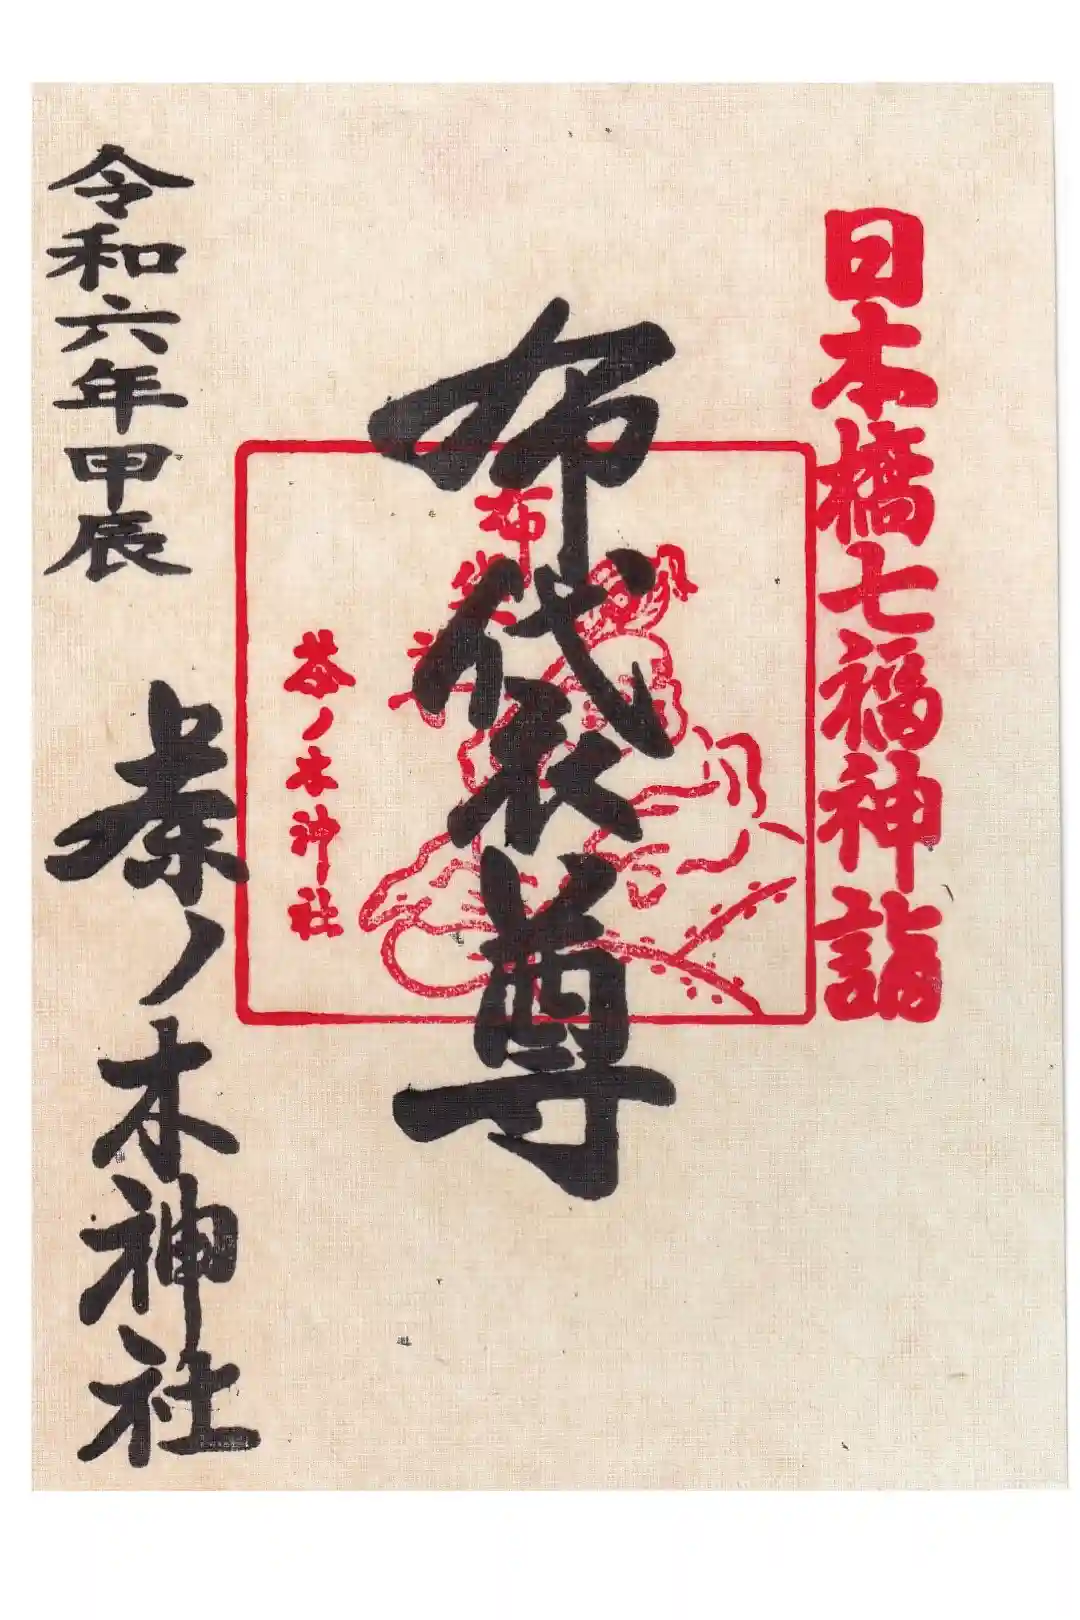 日本橋七福神詣
布袋尊
布袋
茶ノ木神社
令和六年甲辰
茶ノ木神社